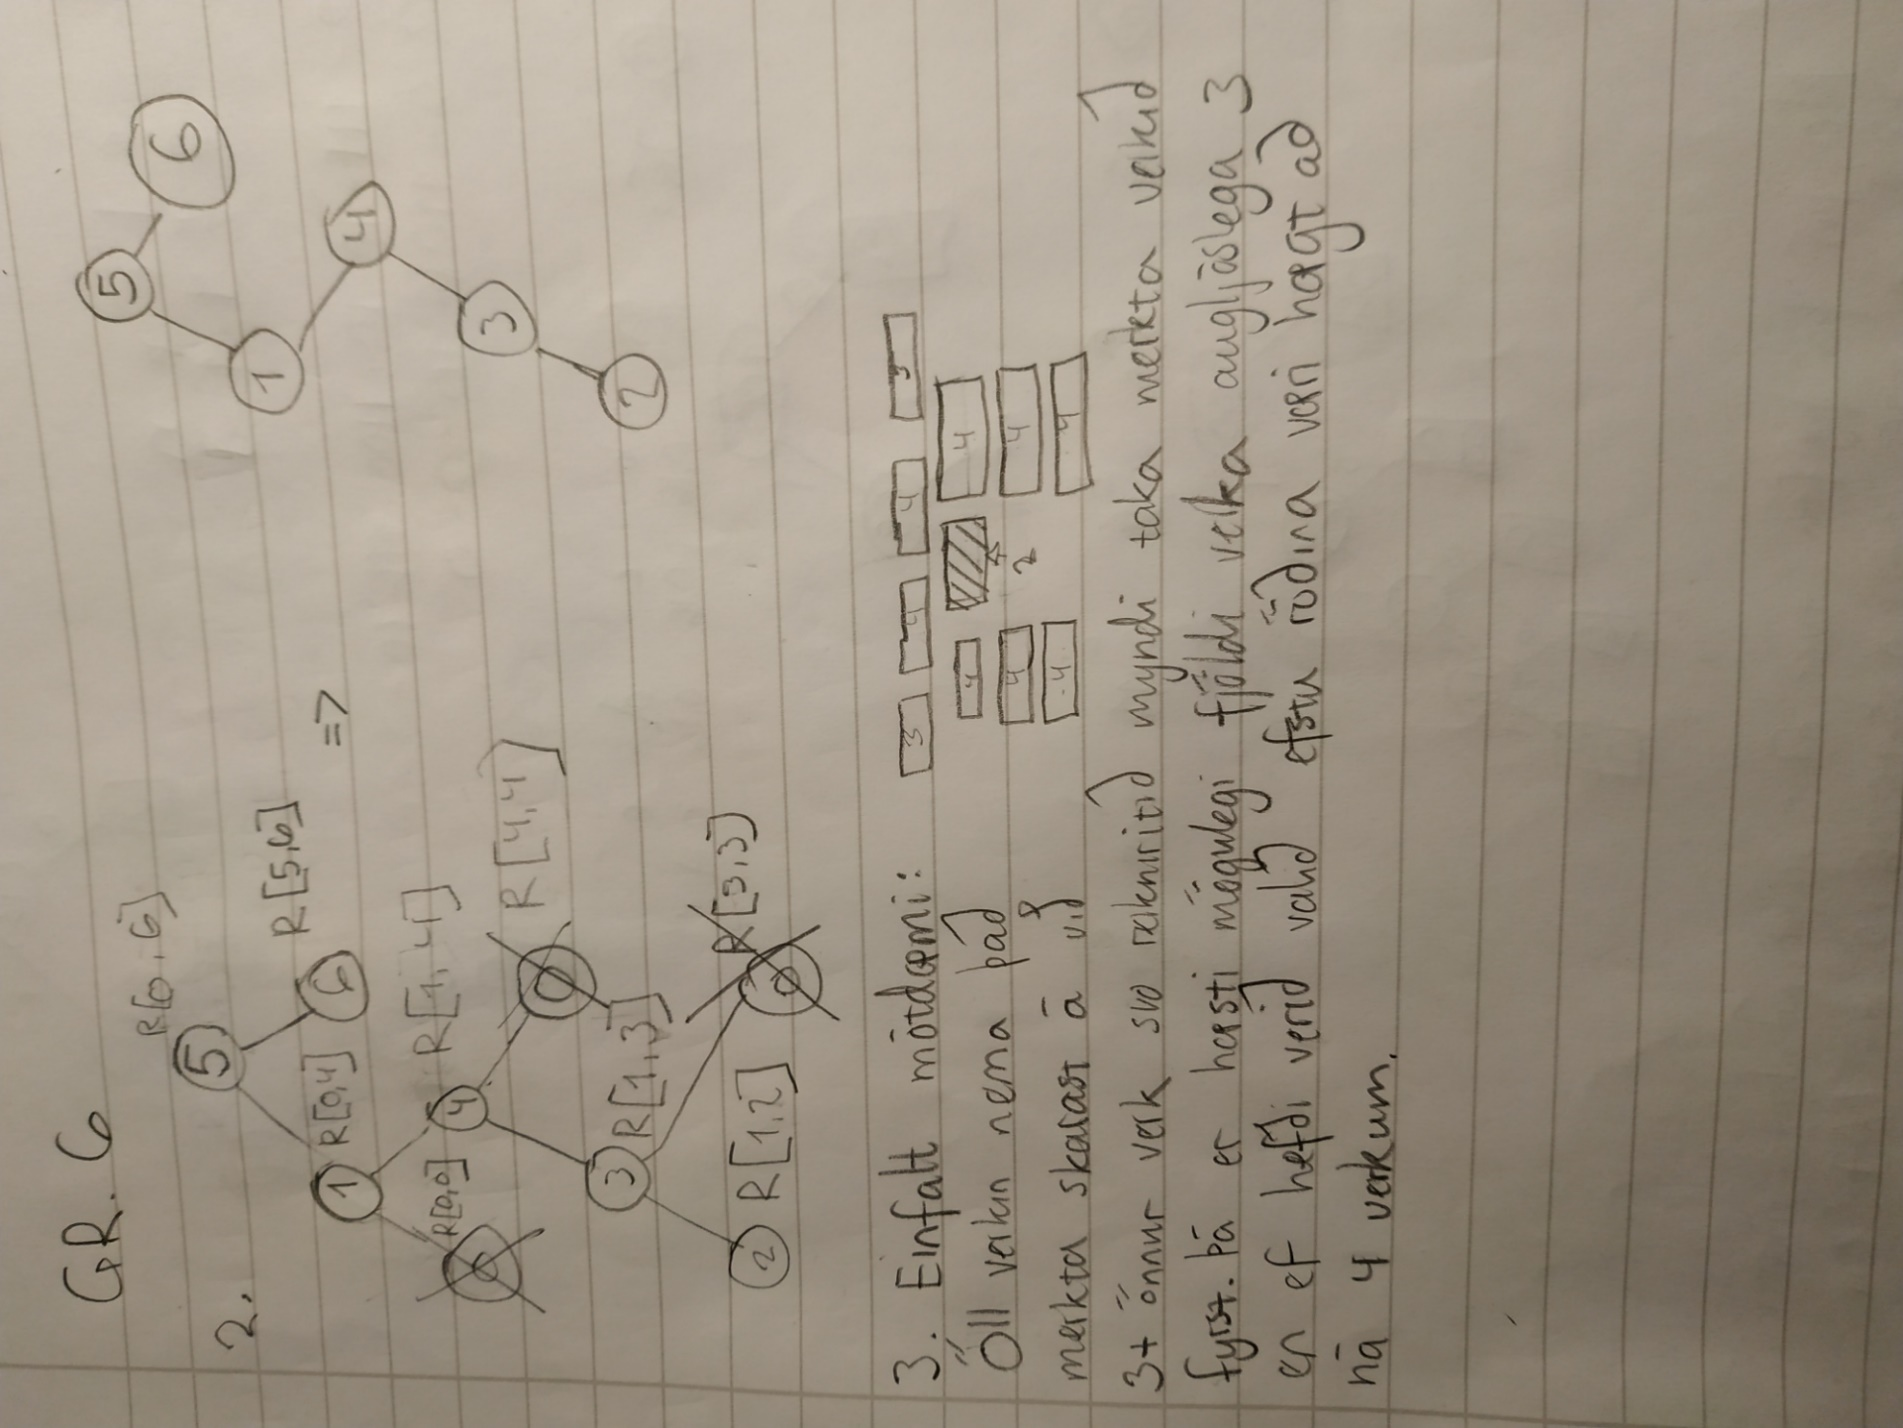 GR. 6
2.
R[0,6]
5
R[0,4] R[5,6]
1 6
=>
R[0,0] R[1,4]
0 4
R[4,4]
0
3 R[1,3]
R[3,3]
0
2 R[1,2]
5
6
1
4
3
2
3. Einfalt mótdæmi:
Öll verkin nema það
merkta skarast á við
3 4 4 3
4 4
4 2 4
4 4
3+ önnur verk svo reikniritið myndi taka merkta verkið
fyrst. Þá er hæsti mögulegi fjöldi verka augljóslega 3
en ef hefði verið valið efstu röðina væri hægt að
ná 4 verkum.